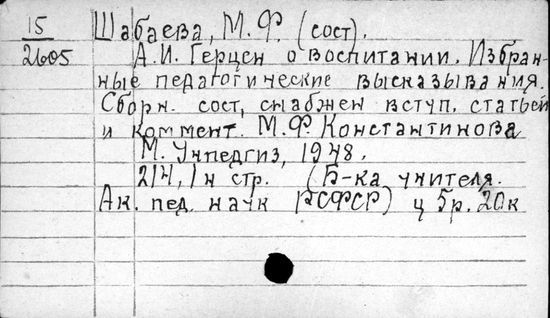 15
2605
Шабаева, М. Ф. (сост).
А. И. Герцен о воспитании. Избран-
ные педагогические высказывания.
Сборн. сост, снабжен вступ. статьей
и коммент. М. Ф. Константинова
М. Учпедгиз, 1948.
214, 1 н стр. (Б-ка учителя.
Ак. пед. наук РСФСР) ц 5 р. 20 к